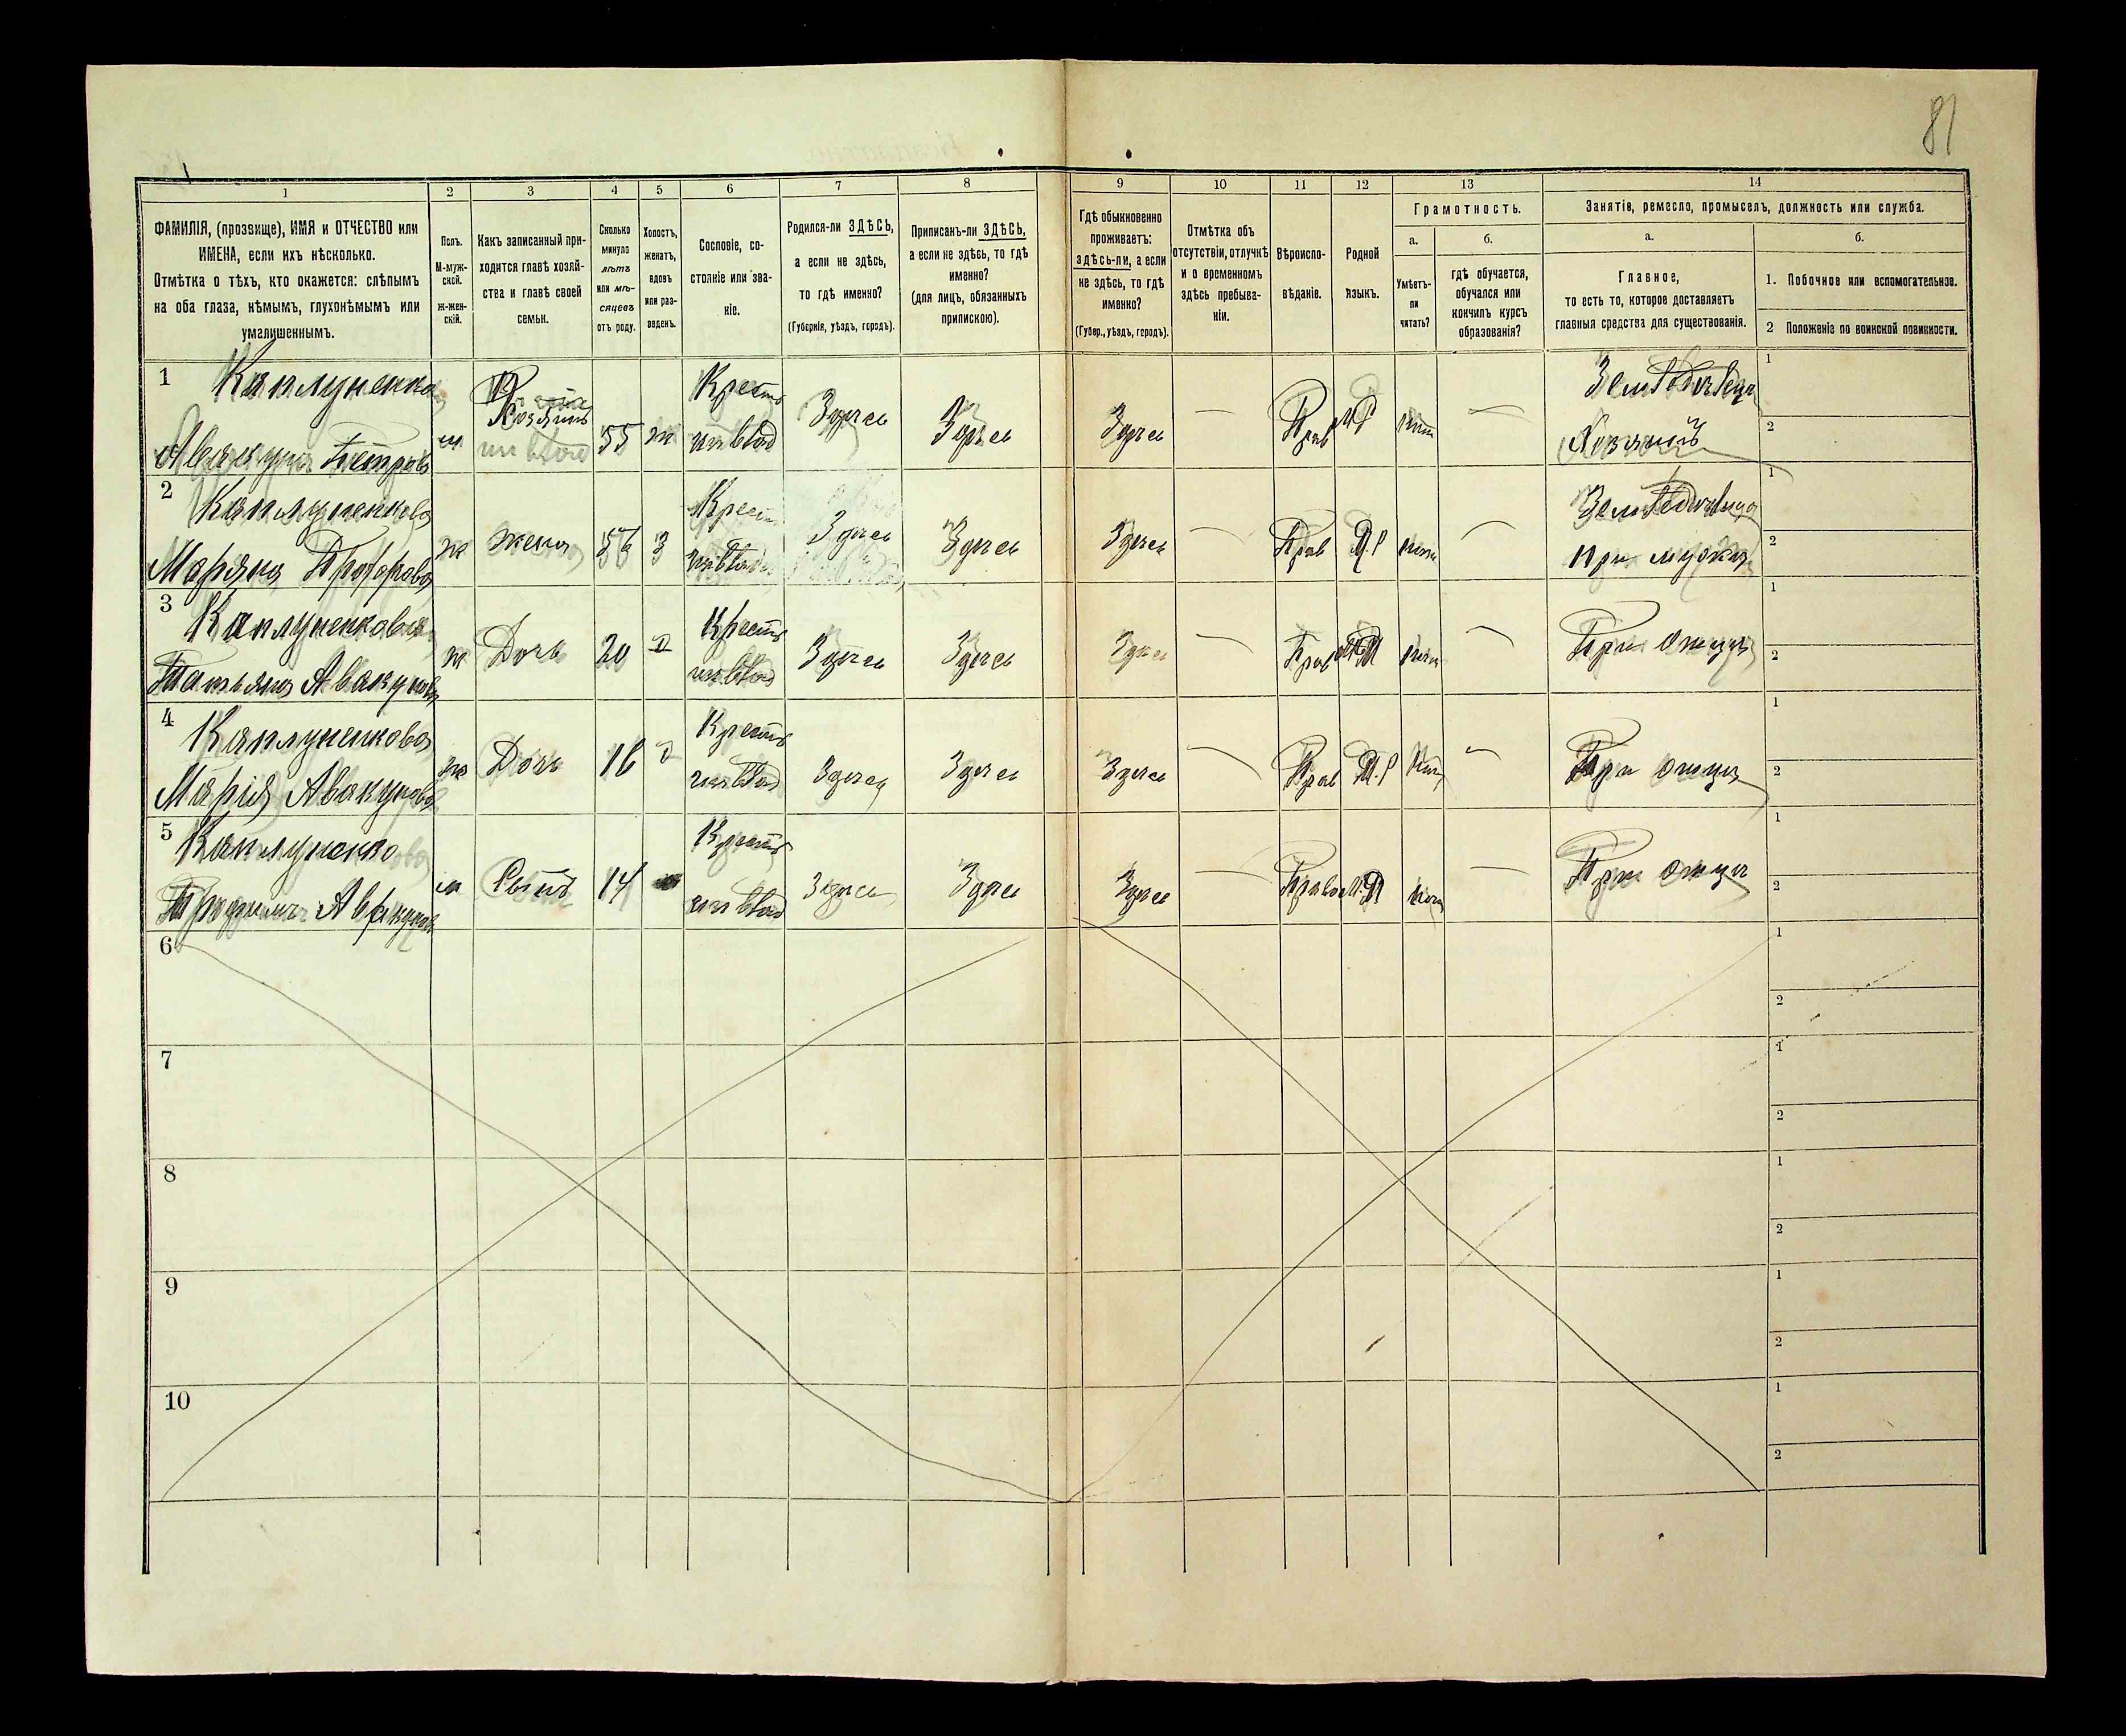 81
1 2 3 4 5 6 7 8 9 10 11 12 13 14
ФАМИЛІЯ, (прозвище), ИМЯ и ОТЧЕСТВО или
ИМЕНА, если ихъ нѣсколько.
Отмѣтка о тѣхъ, кто окажется: слѣпымъ
на оба глаза, нѣмымъ, глухонѣмымъ или
умалишеннымъ.
Полъ.
М-муж-
ской.
ж-жен-
скій.
Какъ записанный при-
ходится главѣ хозяй-
ства и главѣ своей
семьи.
Сколько
минуло
лѣтъ
или мѣ-
сяцевъ
отъ роду.
Холостъ,
женатъ,
вдовъ
или раз-
веденъ.
Сословіе, со-
стояніе или зва-
ніе.
Родился-ли ЗДѢСЬ,
а если не здѣсь,
то гдѣ именно?
(Губернія, уѣздъ, городъ).
Приписанъ-ли ЗДѢСЬ,
а если не здѣсь, то гдѣ
именно?
(для лицъ, обязанныхъ
припискою).
Гдѣ обыкновенно
проживаетъ:
здѣсь-ли, а если
не здѣсь, то гдѣ
именно?
(Губер., уѣздъ, городъ).
Отмѣтка объ
отсутствіи, отлучкѣ
и о временномъ
здѣсь пребыва-
ніи.
Вѣроиспо-
вѣданіе.
Родной
языкъ.
Грамотность.
а.
Умѣетъ-
ли
читать?
б.
гдѣ обучается,
обучался или
кончилъ курсъ
образованія?
Занятія, ремесло, промыселъ, должность или служба.
а.
Главное,
то есть то, которое доставляетъ
главныя средства для существованія.
б.
1. Побочное или вспомогательное.
2 Положеніе по воинской повинности.
1 Каплуненко
Авакумъ Петровъ
м Хозяинъ 55 ж Крестъ Здѣсь Здѣсь Здѣсь — Прав нѣт —
Хозяинъ
1
2
2 Каплуненкова
Марѳа
ж жена 56 З Крест Здѣсь Здѣсь Здѣсь — Прав —
при мужѣ
1
2
3 Каплуненкова
Татьяна Авакумова
ж Дочь 20 Д Крестъ Здѣсь Здѣсь Здѣсь — Прав —
При отцѣ
1
2
4 Каплуненкова
Марія Авакумова
ж Дочь 16 Д Крестъ Здѣсь Здѣсь Здѣсь — Прав —
При отцѣ
1
2
5 Каплуненко
Трофимъ Авакумовъ
м Сынъ 14 Крестъ Здѣсь Здѣсь Здѣсь — Право —
При отцѣ
1
2
6
1
2
7
1
2
8
1
2
9
1
2
10
1
2